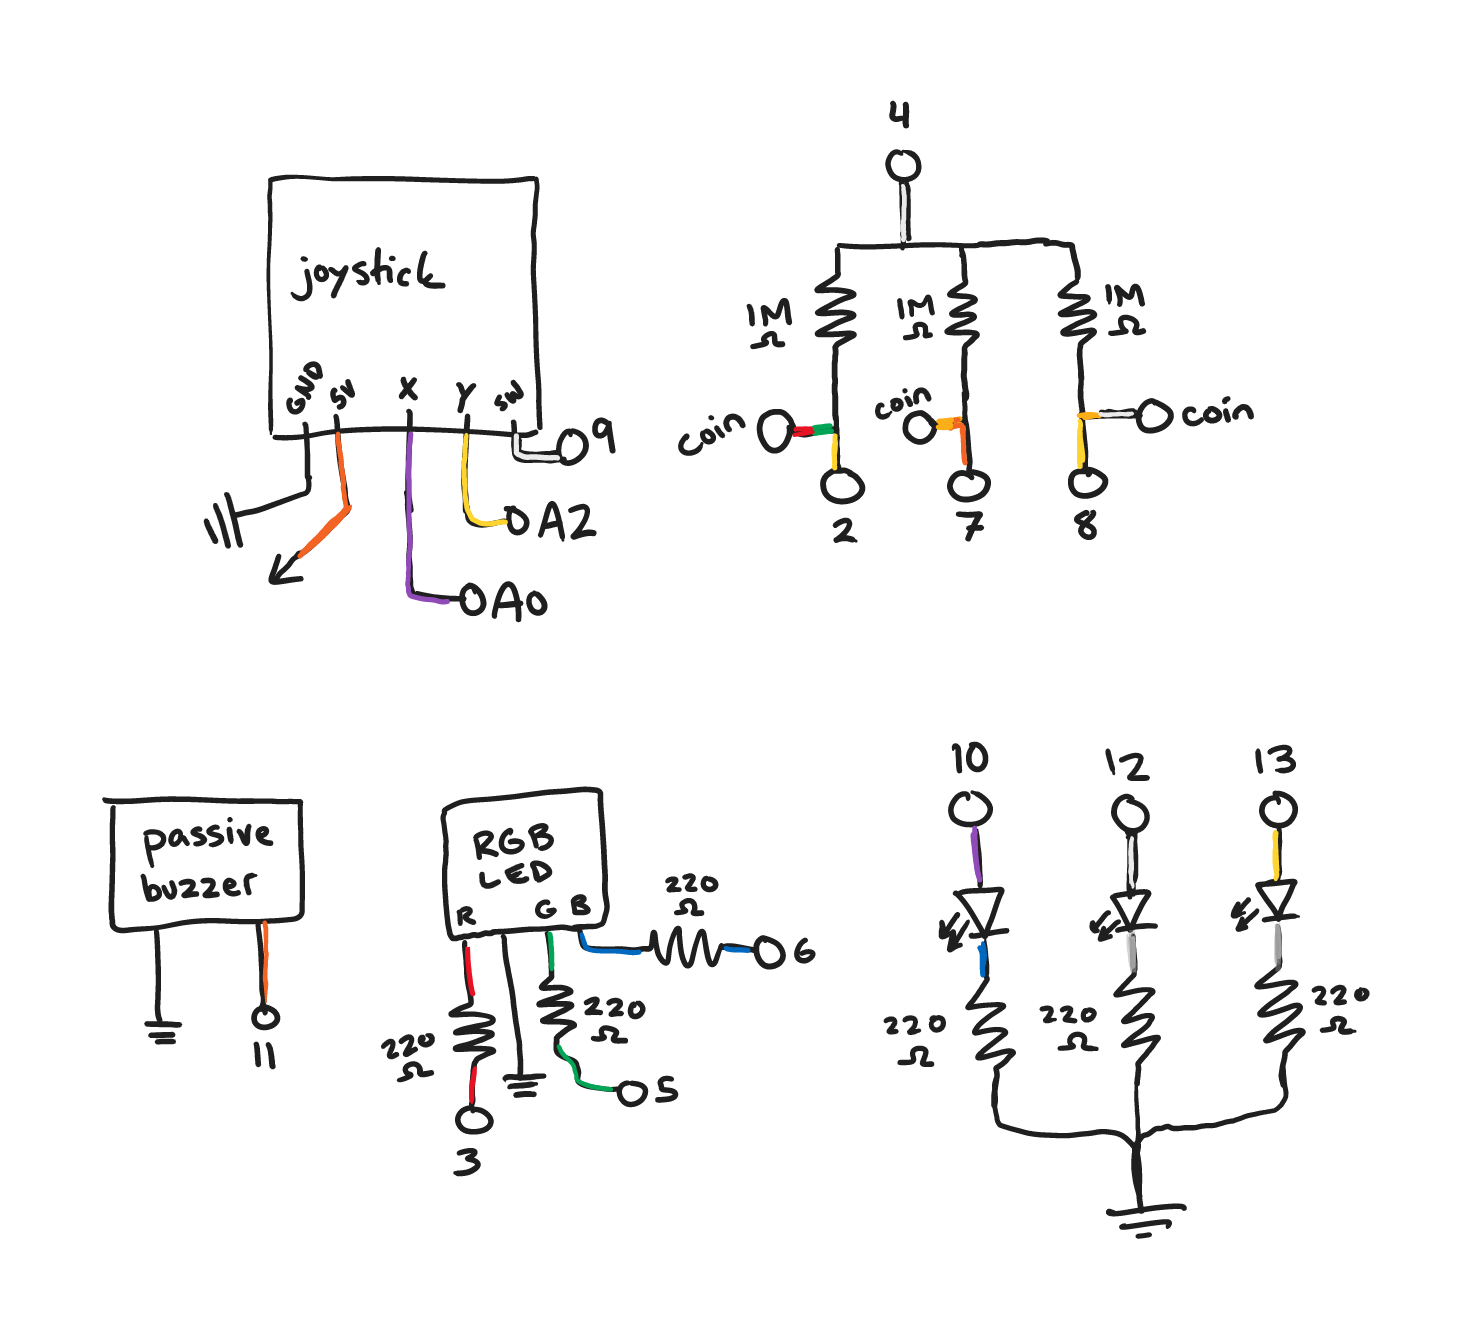 joystick
GND
5V
X
Y
SW
9
A2
A0
4
1M
Ω
1M
Ω
1M
Ω
coin
coin
coin
2
7
8
passive
buzzer
11
RGB
LED
R
G
B
220
Ω
6
220
Ω
5
220
Ω
3
10
12
13
220
Ω
220
Ω
220
Ω